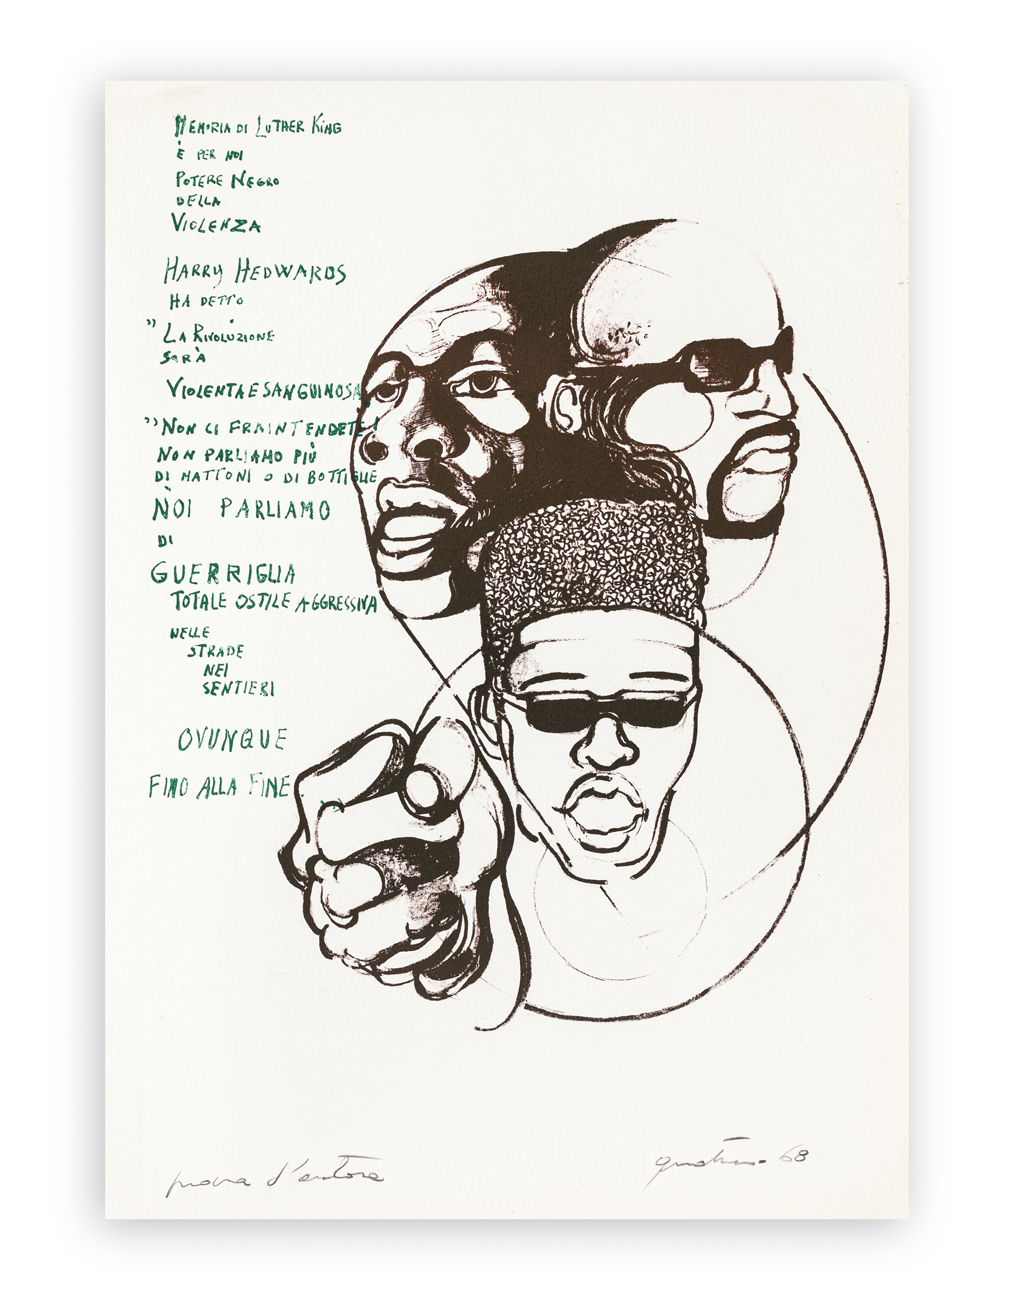 MEMORIA DI LUTHER KING
È PER NOI
POTERE NEGRO
DELLA
VIOLENZA
HARRY HEDWARDS
HA DETTO
" LA RIVOLUZIONE
SARÀ
VIOLENTA E SANGUINOSA,
" NON CI FRAINTENDETE !
NON PARLIAMO PIÙ
DI MATTONI O DI BOTTIGLIE
NOI PARLIAMO
DI
GUERRIGLIA
TOTALE OSTILE AGGRESSIVA
NELLE
STRADE
NEI
SENTIERI
OVUNQUE
FINO ALLA FINE . "
prova d'autore
68